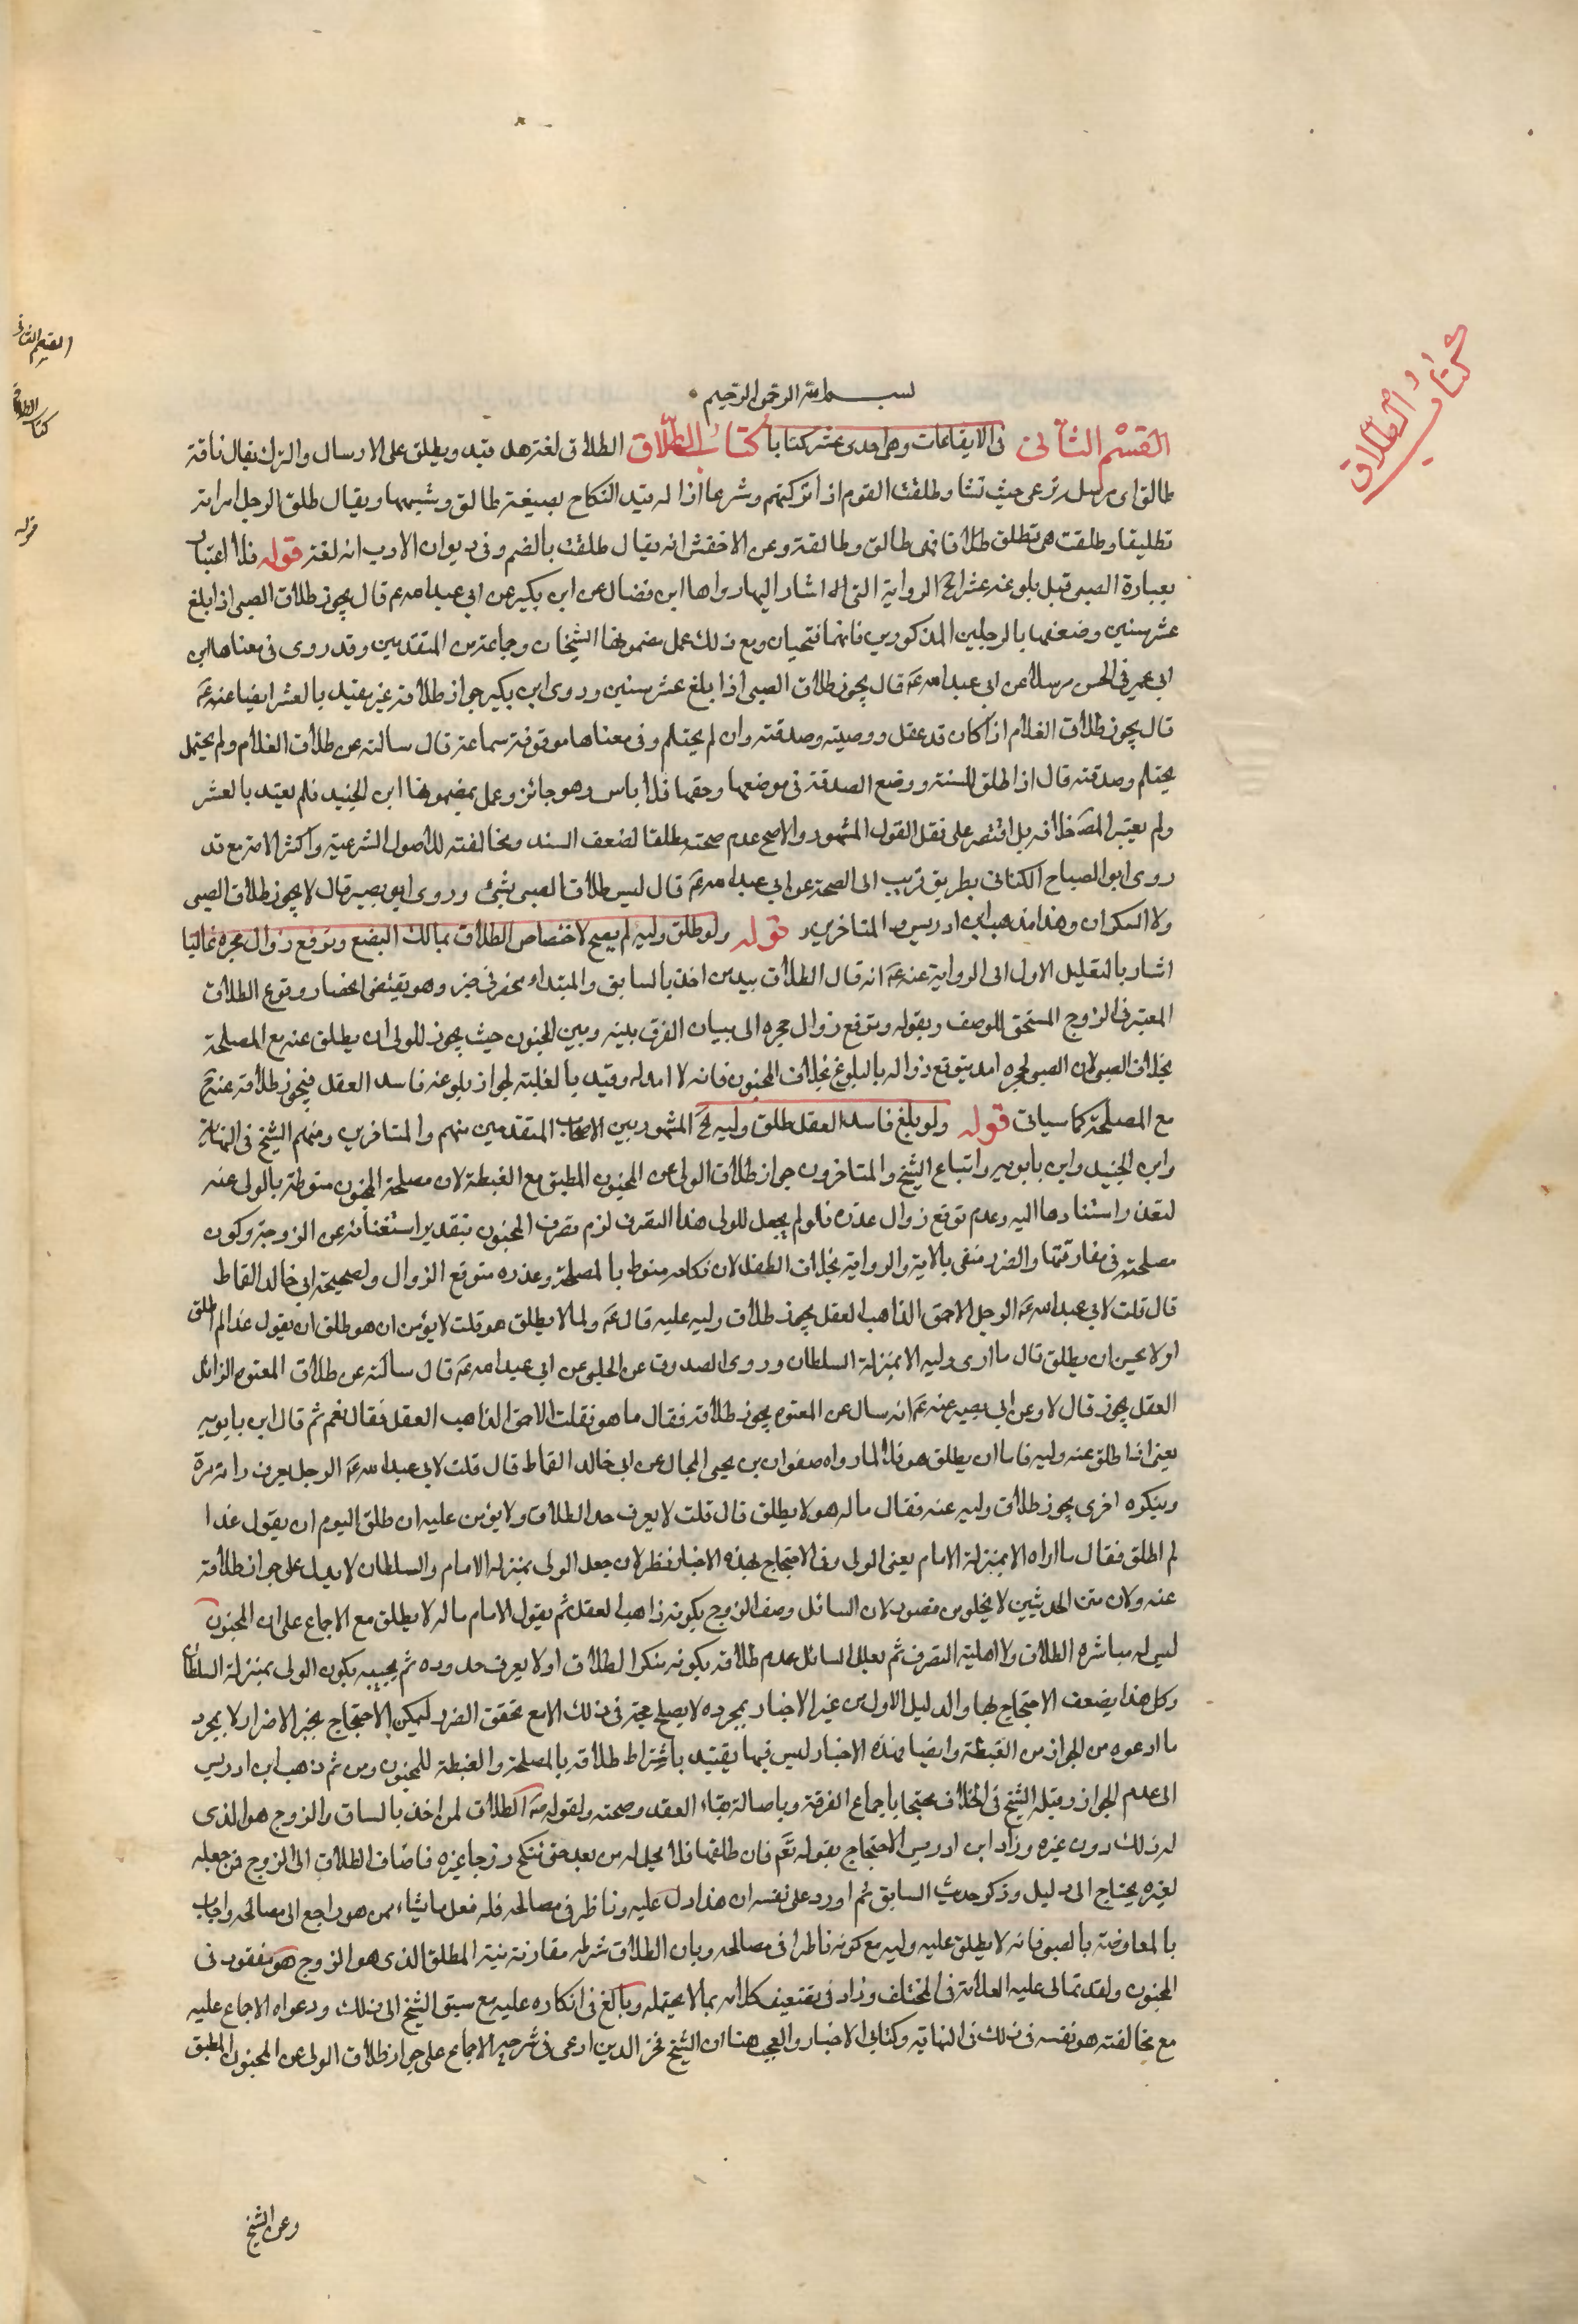 كتاب الطلاق
القسم الثاني
كتاب الطلاق
قوله
بسم الله الرحمن الرحيم
القسم الثاني في الايقاعات وهي احدى عشر كتابا كتاب الطلاق الطلاق لغة حل قيد ويطلق على الارسال والترك يقال ناقة
طالق اى مرسلة ترعى حيث تشا وطلقت القوم اذا تركتهم وشرعا ازالة قيد النكاح بصيغة طالق وشبهها ويقال طلق الرجل امراته
تطليقا وطلقت هى تطلق طلاقا فهى طالق وطالقة وعن الاخفش انه يقال طلقت بالضم وفى ديوان الادب انه لغة قوله فلا اعتبار
بعبارة الصبى قبل بلوغه عشرا الخ الرواية التى اشار اليها رواها ابن فضال عن ابن بكير عن ابى عبد الله ع قال يجوز طلاق الصبى اذا بلغ
عشر سنين وضعفها بالرجلين المذكورين فانهما فتحيان ومع ذلك عمل بمضمونها الشيخان وجماعة من المتقدمين وقد روى فى معناها ابن
ابى عمير فى الحسن مرسلا عن ابى عبد الله ع قال يجوز طلاق الصبى اذا بلغ عشر سنين وروى ابن بكير جواز طلاقه غير مقيد بالعشر ايضا عنه ع
قال يجوز طلاق الغلام اذا كان قد عقل ووصيته وصدقته وان لم يحتلم وفى معناها موقوفة سماعة قال سالته عن طلاق الغلام ولم يحتمل
يحتلم وصدقته قال اذا طلق للسنة ووضع الصدقة فى موضعها وحقها فلا باس وهو جائز وعمل بمضمونها ابن الجنيد فلم يقيد بالعشر
ولم يعتبر المص خلافه بل اقتصر على نقل القول المشهور والاصح عدم صحته مطلقا لضعف السند ومخالفته للاصول الشرعية واكثر الامة مع قد
روى ابو الصباح الكنانى بطريق قريب الى الصحة عن ابى عبد الله ع قال ليس طلاق الصبى بشئ وروى ابو بصير قال لا يجوز طلاق الصبى
ولا السكران وهذا مذهب ابن ادريس و المتاخرين قوله ولو طلق وليه لم يصح لاختصاص الطلاق بمالك البضع وتوقع زوال حجره غالبا
اشار بالتعليل الاول الى الرواية عنه ع انه قال الطلاق بيد من اخذ بالساق والمبتداء منحصر فى خبره وهو يقتضى انحصار وقوع الطلاق
المعتبر فى الزوج المستحق للوصف وبقوله وتوقع زوال حجره الى بيان الفرق بينه وبين المجنون حيث يجوز للولى ان يطلق عنه مع المصلحة
بخلاف الصبى لان الصبى لحجره امد يتوقع زواله بالبلوغ بخلاف المجنون فانه لا امد له وقيد بالغلبة لجواز بلوغه فاسد العقل فيجوز طلاقه عنه ح
مع المصلحة كما سياتى قوله ولو بلغ فاسد العقل طلق وليه الخ المشهور بين الاصحاب المتقدمين منهم والمتاخرين ومنهم الشيخ فى النهاية
وابن الجنيد وابن بابويه واتباع الشيخ والمتاخرون جواز طلاق الولى عن المجنون المطبق مع الغبطة لان مصلحة المجنون منوطة بالولى عنه
لتعذر استنادها اليه وعدم توقع زوال عذره فلو لم يجعل للولى هذا التصرف لزم تضرر المجنون بتقدير استغنائه عن الزوجة وكون
مصلحته فى مفارقتها والضرر منفى بالاية والرواية بخلاف الطفل لان نكاحه منوط بالمصلحة وعذره متوقع الزوال ولصحيحة ابى خالد القماط
قال قلت لابى عبد الله ع الرجل الاحمق الذاهب العقل يجوز طلاق وليه عليه قال ع ولم لا يطلق هو قلت لا يؤمن ان هو طلق ان يقول غدا لم اطلق
او لا يحسن ان يطلق قال ما ارى وليه الا بمنزلة السلطان وروى الصدوق عن الحلبى عن ابى عبد الله ع قال سالته عن طلاق المعتوه الزائل
العقل يجوز قال لا وعن ابى بصير عنه ع انه سال عن المعتوه يجوز طلاقه فقال ما هو فقلت الاحمق الذاهب العقل فقال نعم ثم قال ابن بابويه
يعنى اذا طلق عنه وليه فاما ان يطلق هو فلا لما رواه صفوان بن يحيى الجمال عن ابى خالد القماط قال قلت لابى عبد الله ع الرجل يعرف رايه مرة
وينكره اخرى يجوز طلاق وليه عنه فقال ما له هو لا يطلق قال قلت لا يعرف حد الطلاق ولا يؤمن عليه ان طلق اليوم ان يقول غدا
لم اطلق فقال ما اراه الا بمنزلة الامام يعنى الولى وفى الاحتجاج بهذه الاخبار نظر لان جعل الولى بمنزلة الامام والسلطان لا يدل على جواز طلاقه
عنه ولان متن الحديثين لا يخلو من قصور لان السائل وصف الزوج بكونه ذاهب العقل ثم يقول الامام ما له لا يطلق مع الاجماع على ان المجنون
ليس له مباشرة الطلاق ولا اهلية التصرف ثم يعلل السائل عدم طلاقه بكونه ينكر الطلاق او لا يعرف حدوده ثم يجيبه بكون الولى بمنزلة السلطان
وكل هذا يضعف الاحتجاج بها والدليل الاول من غير الاخبار بمجرده لا يصلح حجة فى ذلك الا مع تحقق الضرر ليمكن الاحتجاج بخبر الاضرار لا بمجرد
ما ادعوه من الجواز من الغبطة وايضا فهذه الاخبار ليس فيها يقتيد باشتراط طلاقه بالمصلحة والغبطة للمجنون ومن ثم ذهب ابن ادريس
الى عدم الجواز وقبله الشيخ فى الخلاف محتجا باجماع الفرقة وباصالة بقاء العقد وصحته ولقوله ص الطلاق لمن اخذ بالساق والزوج هو الذى
له ذلك دون غيره وزاد ابن ادريس الاحتجاج بقوله تع فان طلقها فلا تحل له من بعد حتى تنكح زوجا غيره فاضاف الطلاق الى الزوج فمن جعله
لغيره يحتاج الى دليل وذكر حديث السابق ثم اورد على نفسه ان هذا دل عليه وناظر فى مصالحه فله فعل ما يشاء مما هو راجع الى مصالحه واجاب
بالمعارضة بالصبى فانه لا يطلق عليه وليه مع كونه ناظرا فى مصالحه وبان الطلاق شرطه مقارنة نية المطلق الذى هو الزوج هو مفقود فى
المجنون ولقد تمالى عليه العلامة فى المختلف وزاد فى تضعيف كلامه بما لا يحتمله وبالغ فى انكاره عليه مع سبق الشيخ الى ذلك ودعواه الاجماع عليه
مع مخالفته هو نفسه فى ذلك فى النهاية وكتابى الاخبار والعجب هنا ان الشيخ فخر الدين ادعى فى شرحه الاجماع على جواز طلاق الولى عن المجنون المطبق
وعن الشيخ